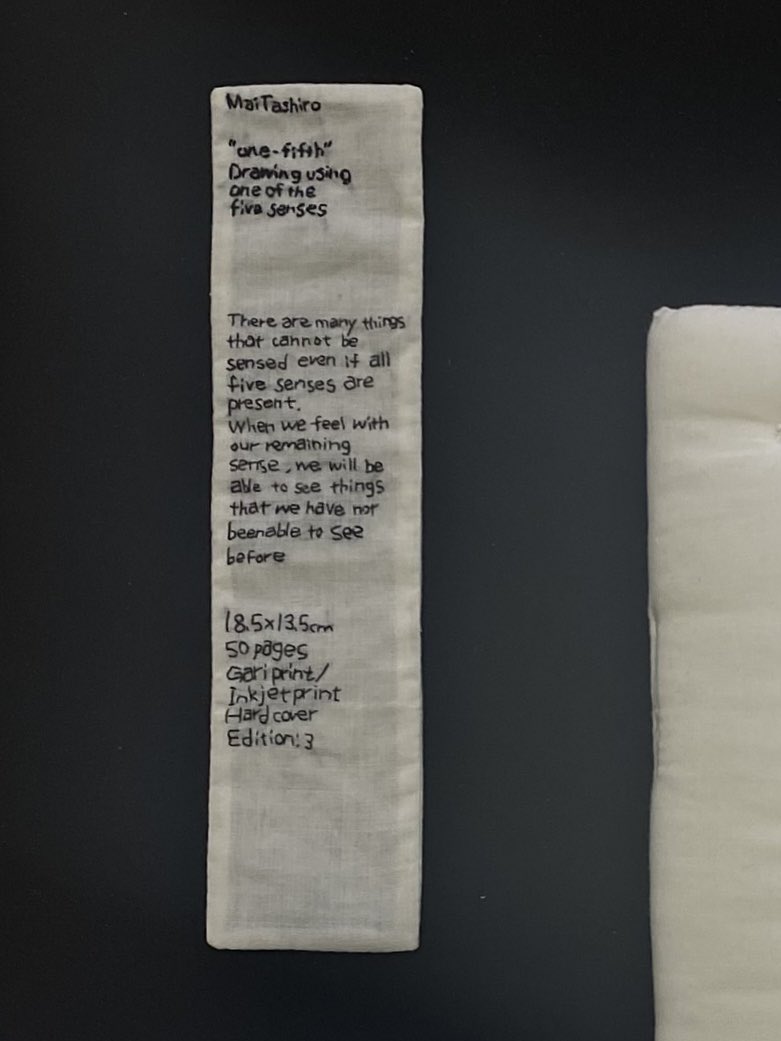 Mai Tashiro
"one-fifth"
Drawing using
one of the
five senses
There are many things
that cannot be
sensed even if all
five senses are
present.
When we feel with
our remaining
sense, we will be
able to see things
that we have not
beenable to see
before
18.5×13.5cm
50 pages
Gari print/
Inkjet print
Hard cover
Edition:3